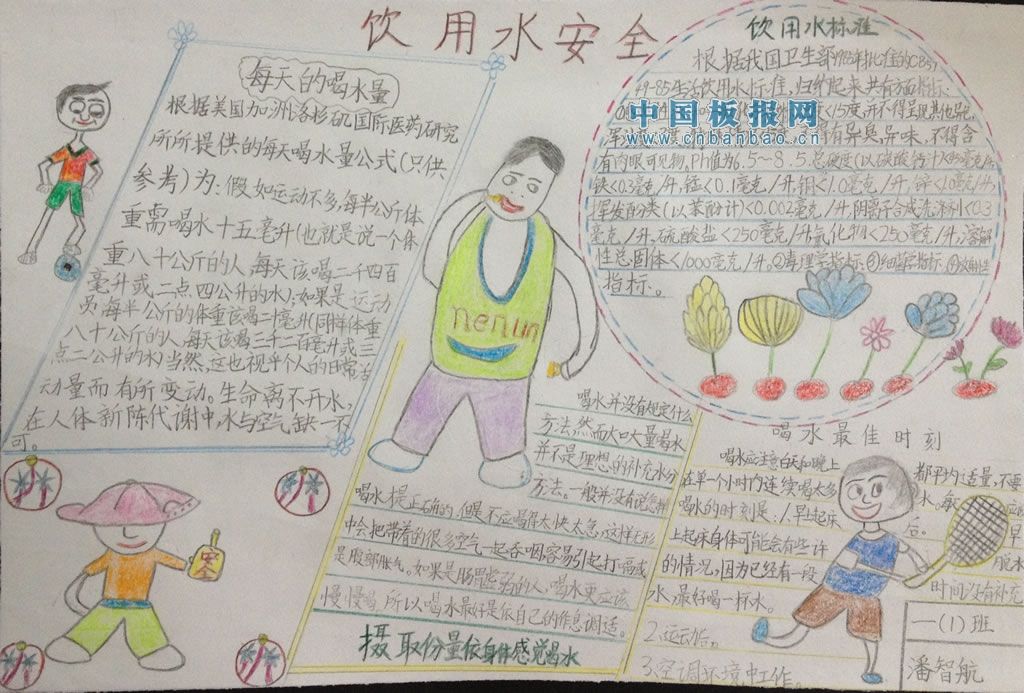 饮用水安全
每天的喝水量
根据美国加洲洛杉矶国际医药研究
所所提供的每天喝水量公式(只供
参考)为:假如运动不多,每半公斤体
重需喝水十五毫升(也就是说一个体
重八十公斤的人,每天该喝二千四百
毫升或二点四公升的水);如果是运动
员,每半公斤的体重该喝二十毫升(同样体重
八十公斤的人,每天该喝三千二百毫升或三
点二公升的水)当然,这也视乎个人的日常活
动量而有所变动。生命离不开水,
在人体新陈代谢中,水与空气缺一不
可。
饮用水标准
根据我国卫生部1985年批准的GB57
49-85生活饮用水标准,归纳起来共有方面指标:
<15度,并不得呈现其他异色,
有异臭、异味,不得含
有肉眼可见物,PH值为6.5~8.5,总硬度(以碳酸钙计)
铁<0.3毫克/升,锰<0.1毫克/升,铜<1.0毫克/升,锌<1.0毫克/升,
挥发酚类(以苯酚计)<0.002毫克/升,阴离子合成洗涤剂<0.3
毫克/升,硫酸盐<250毫克/升,氯化物<250毫克/升,溶解
性总固体<1000毫克/升。②毒理学指标③细菌学指标④放射性
指标。
中国板报网
www.cnbanbao.cn
nenlin
喝水并没有规定什么
方法,然而大口大量喝水
并不是理想的补充水分
方法。一般并没有说怎样
喝水是正确的,但是不应喝得太快太急,这样无形
中会把带着的很多空气一起吞咽,容易引起打嗝或
是腹部胀气。如果是肠胃虚弱的人,喝水更应该
慢慢喝,所以喝水最好是依自己的作息调适。
摄取份量依身体感觉喝水
喝水最佳时刻
喝水应注意白天和晚上
都平均适量,不要
在单一个小时内连续喝太多
水。每
喝水的时刻是:1早起床
后。
早
上起床身体可能会有些许
脱水
的情况,因为已经有一段
时间没有补充
水,最好喝一杯水。
2.运动后。
3.空调环境中工作。
安全
一(1)班
潘智航